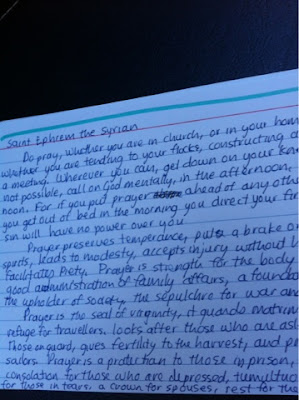 Saint Ephrem the Syrian
Do pray, whether you are in church, or in your
whether you are tending to your flocks, constructing
a meeting. Wherever you can, get down on your
not possible, call on God mentally, in the afternoon,
noon. For if you put prayer ahead of any
you get out of bed in the morning you direct your
sin will have no power over you.
Prayer preserves temperance, puts a brake
spirits, leads to modesty, accepts injury without
facilitates Piety. Prayer is strength for the body,
good administration of family affairs, a
the upholder of society, the sepulchre for war and
Prayer is the seal of virginity, it guards
refuge for travellers, looks after those who are
those on guard, gives fertility to the harvest, and
sailors. Prayer is a protection to those in prison,
consolation for those who are depressed,
for those in tears, a crown for spouses, rest for the